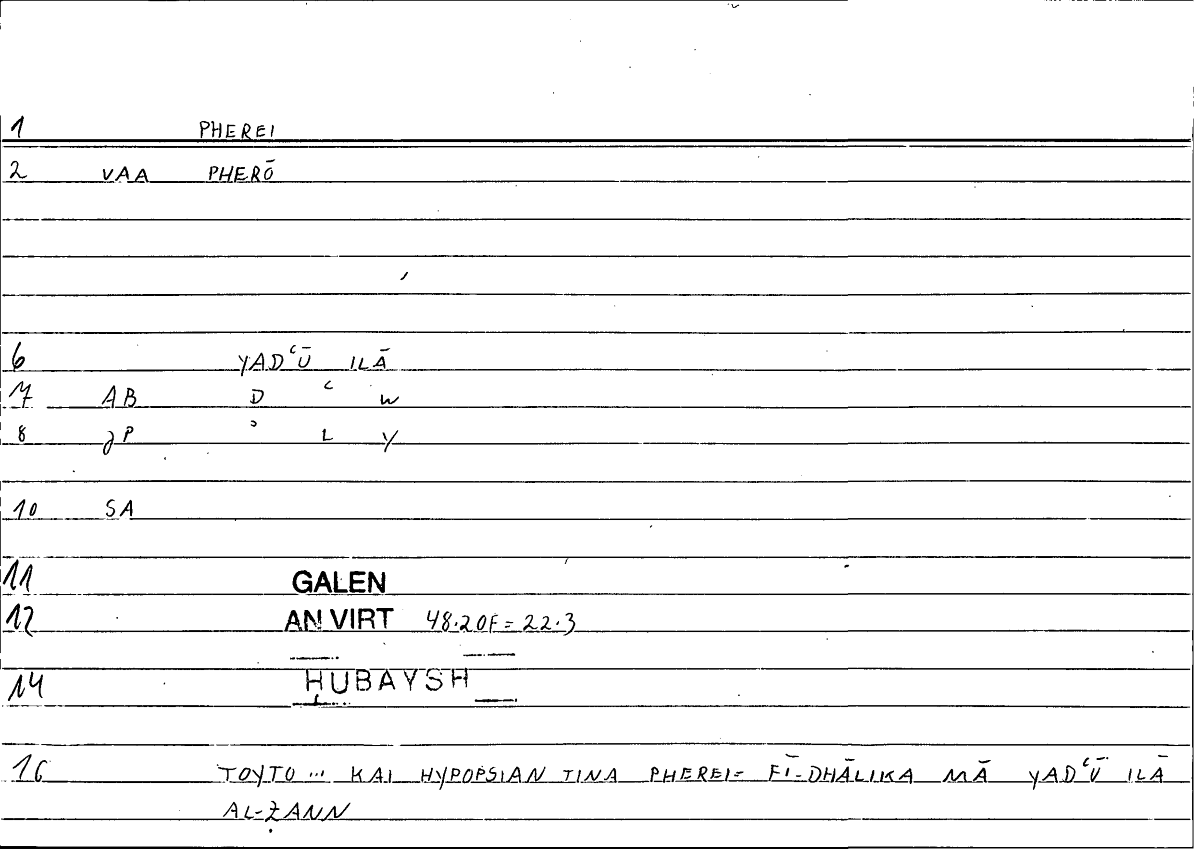 1 PHEREI
2 VAA PHERŌ
6 YADʿŪ ILĀ
7 AB D ʿ W
8 JP ʾ L Y
10 SA
11 GALEN
12 AN VIRT 48.20F = 22.3
14 ḤUBAYSH
16 TOYTO ... KAI HYPOPSIAN TINA PHEREI = FĪ-DHĀLIKA MĀ YADʿŪ ILĀ
AL-ẒANN